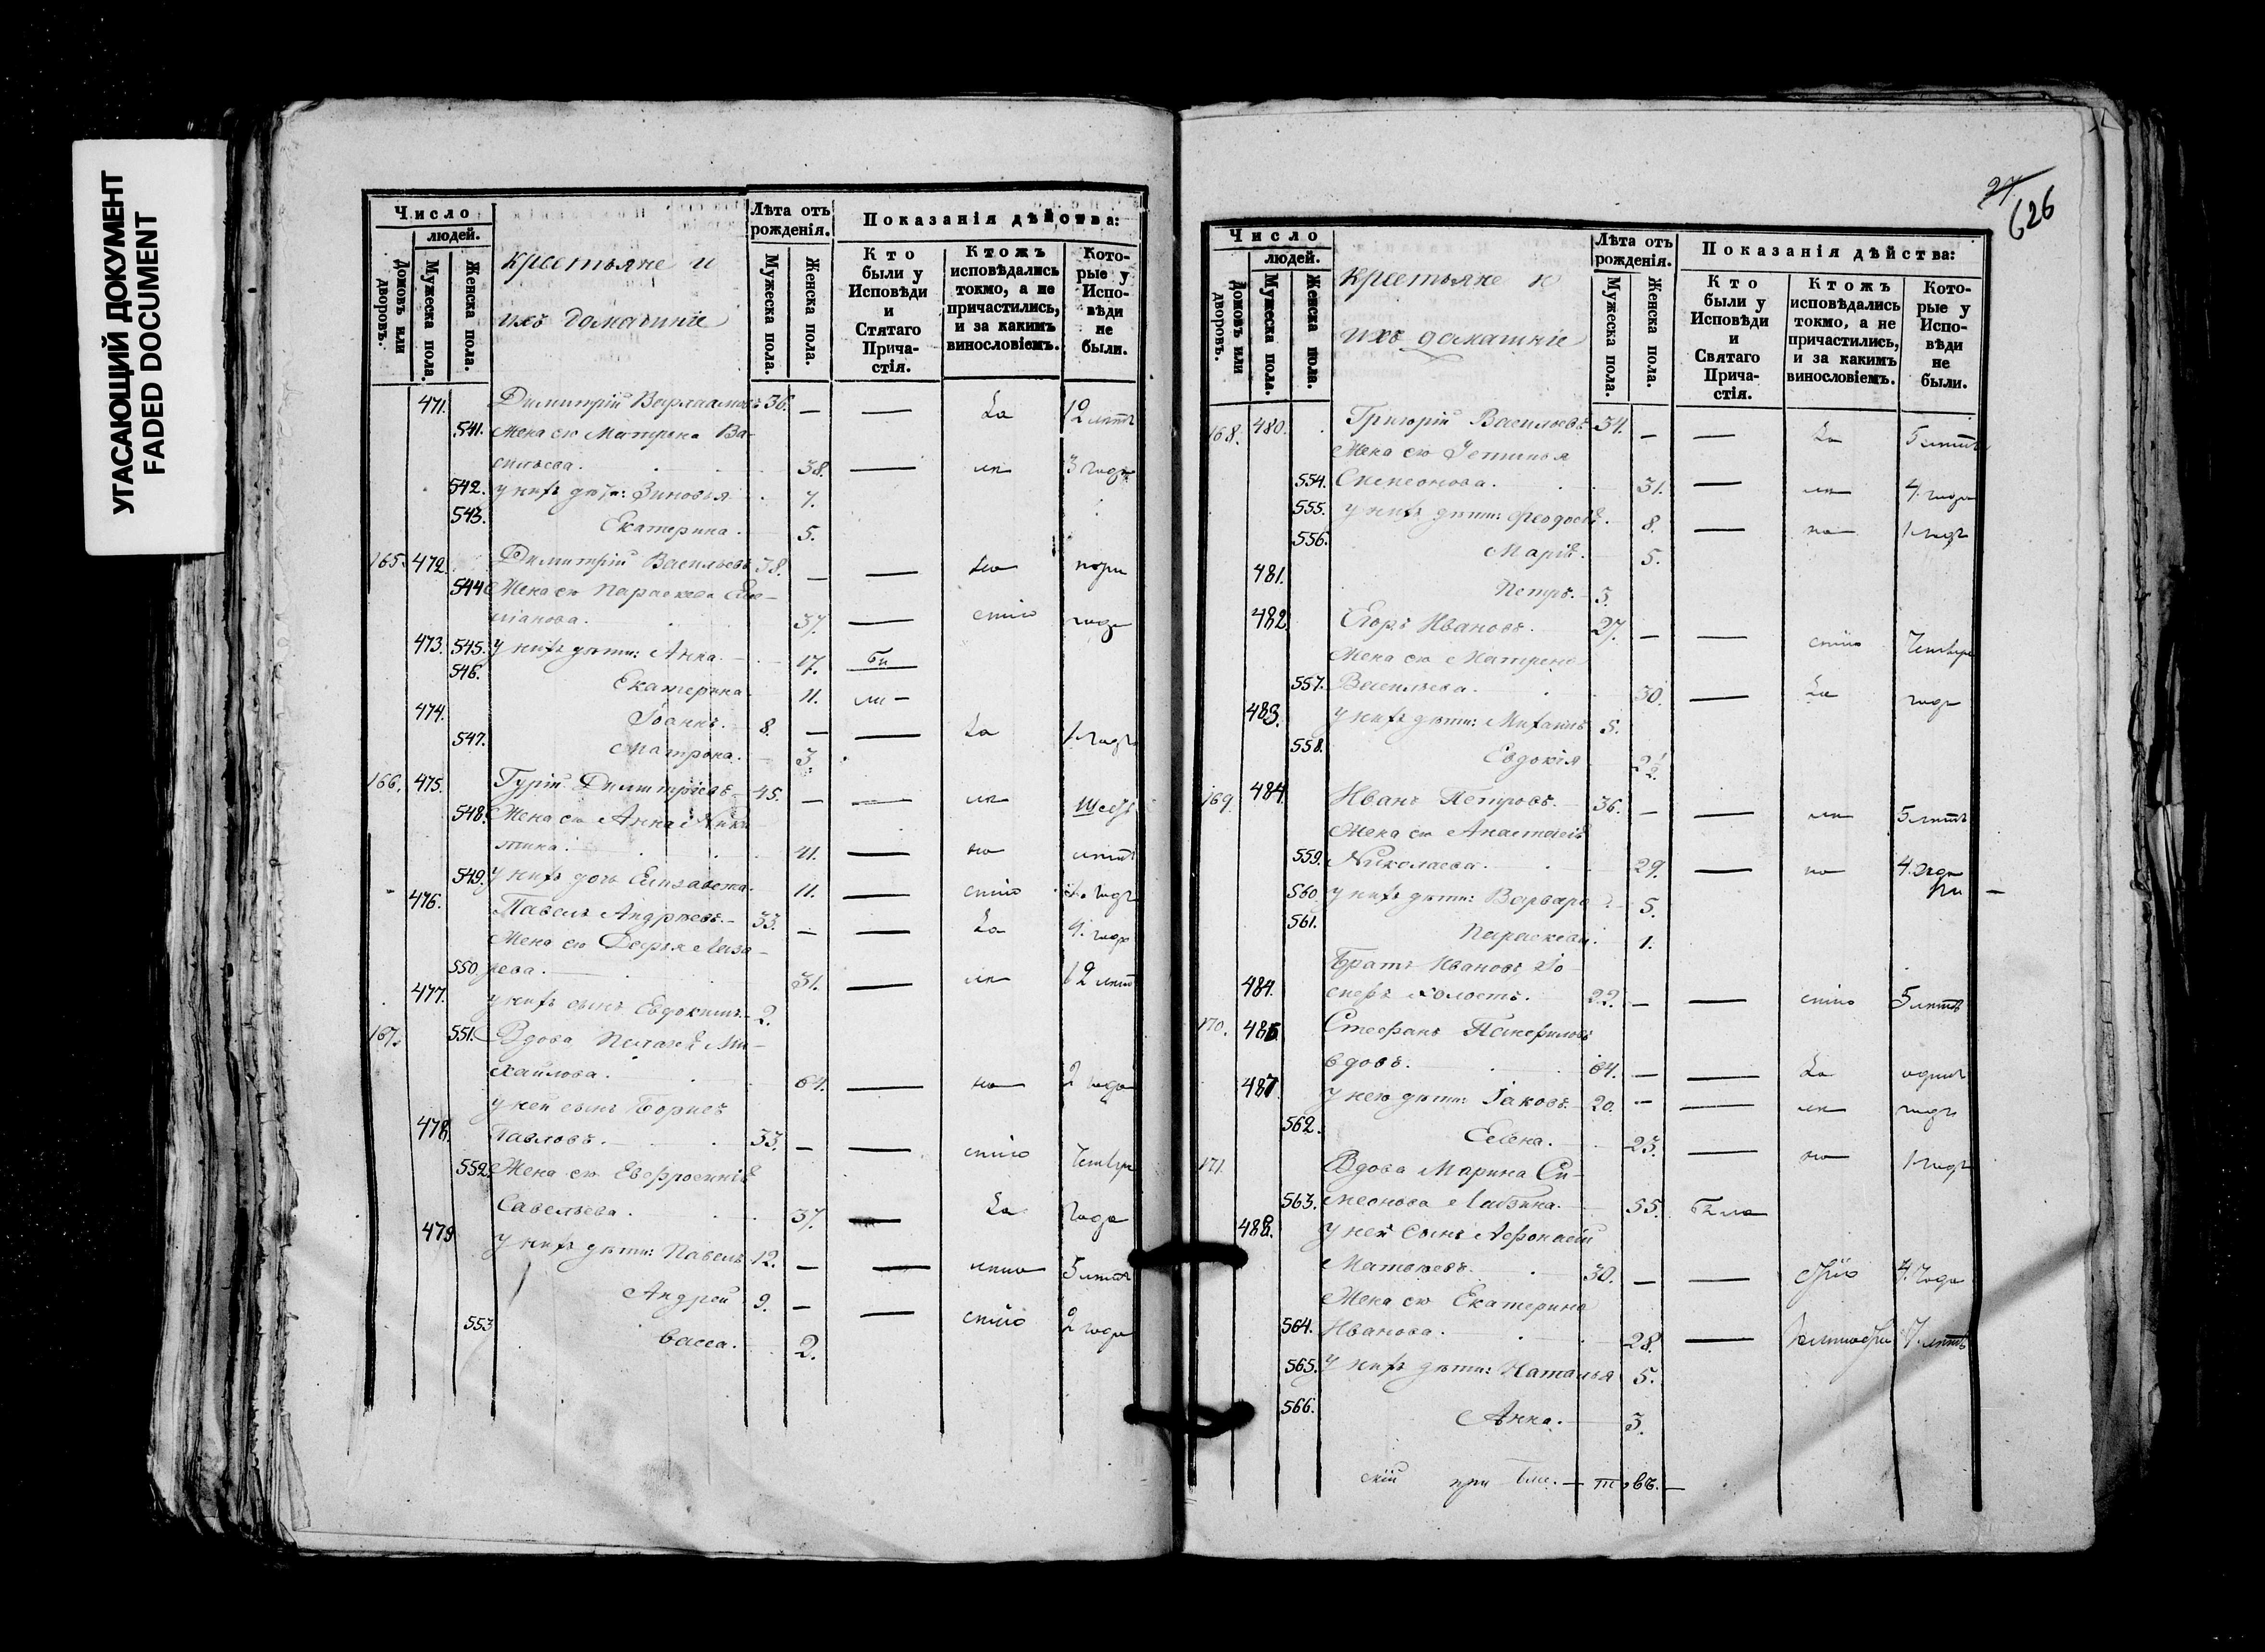 УГАСАЮЩИЙ ДОКУМЕНТ
FADED DOCUMENT
Число
людей.
Домовъ или дворовъ.
Мужеска пола.
Женска пола.
крестьяне и
ихъ домашніе
Лѣта отъ рожденія.
Мужеска пола.
Женска пола.
Показанія дѣйства:
Кто были у Исповѣди и Стятаго Прича-стія.
Ктожъ исповѣдались токмо, а не причастились, и за какимъ винословіемъ.
Кото-рые у Испо-вѣди не были.
471. Димитрій Варлаамовъ 36. — — За 12 лѣтъ
541. Жена ею Матрона Ва-
сильева. 38. — 3 года
542. у нихъ дѣти: Зиновья 7.
543. Екатерина. 5.
165. 472. Димитрій Васильевъ 38. — —
544. Жена ею Параскева
37. — стію года
473. 545. у нихъ дѣти: Анна. 17.
546. Екатерина 11.
474. Іоаннъ. 8. — — За 1 годъ
547. Матрона. 3.
166. 475. Гурій Димитріевъ 45. — — шесть
548. Жена ею Анна Ники-
тина. 41. — лѣтъ
549. у нихъ дочь Елизавета. 11. — стію годъ
476. Павелъ Андреевъ. 33. — — За года
Жена ею Дарья Лаза-
550. рева. 31. — 12 лѣтъ
477. у нихъ сынъ Евдокимъ. 2.
167. 551. Вдова Ми-
хайлова. 64. — 2 года
у ней сынъ Борисъ
478. Павловъ. 33. — — стію Четыре
552. Жена ею Евфросинія
Савельева. 37. — За года
479 у нихъ дѣти: Павелъ 12. — — 5 лѣтъ
Андрей 9. — — стію 2 года
553 Васса. 2.
27
626
Число
людей.
Домовъ или дворовъ.
Мужеска пола.
Женска пола.
крестьяне и
ихъ домашніе
Лѣта отъ рожденія.
Мужеска пола.
Женска пола.
Показанія дѣйства:
Кто были у Исповѣди и Святаго Прича-стія.
Ктожъ исповѣдались токмо, а не причастились, и за какимъ винословіемъ.
Кото-рые у Испо-вѣди не были.
168. 480. Григорій Васильевъ 34. — — За 5 лѣтъ
Жена ею Устинья
554. Симеонова. 31. — 4 года
555. у нихъ дѣти: 8. — 1 годъ
556. Марія. 5.
481. Петръ.
482. Егоръ Ивановъ. 27. — — стію Четыре
Жена ею Матрона
557. Васильева. 30. — За года
483. у нихъ дѣти: Михаилъ 5.
558. Евдокія 2½
169. 484. Иванъ Петровъ. 36. — — 5 лѣтъ
Жена ею Анастасія
559. Николаева. 29. — 4 года
560. у нихъ дѣти: Варвара 5.
561. Параскева. 1.
Братъ Ивановъ Іо-
484. сифъ холостъ. 22. — — стію 5 лѣтъ
170. 486 Стефанъ Панфиловъ
вдовъ. 64. — — За одинъ
487 у нею дѣти: Іаковъ. 20. — — годъ
562. Елена. 23. — 1 годъ
171. Вдова Марина Си-
563. меонова 55. Была
488. у ней сынъ Афонасій
Матвѣевъ. 30. — — 4 года
Жена ею Екатерина
564. Иванова. 28. — 7 лѣтъ
565. у нихъ дѣти: Наталья 5.
566. Анна. 3.
скій при